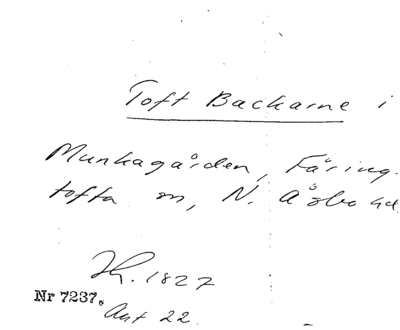 Toft Backarne i
Munkagården, Färing-
tofta sn, N. Åsbo hd.
1827
Nr 7237.
Ant 22.